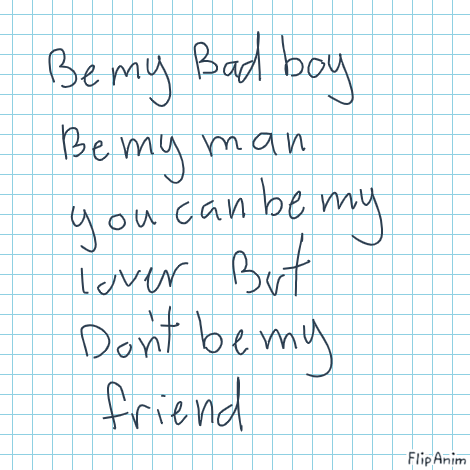 Be my Bad boy
Be my man
you can be my
lover But
Don't be my
friend
FlipAnim